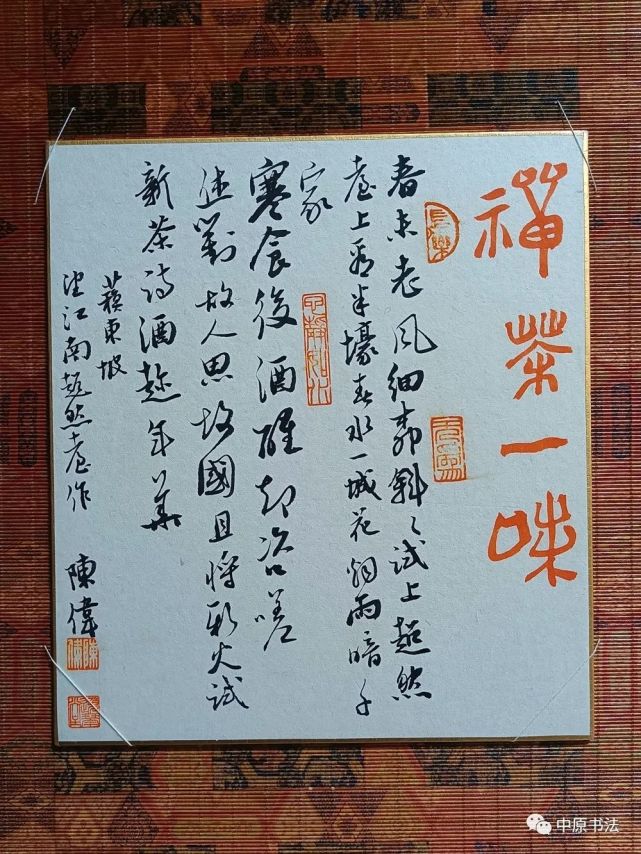 禪茶一味
長樂
春未老风細柳斜〻试上超然
臺上看半壕春水一城花烟雨暗千
家
寒食後酒醒却咨嗟
休對故人思故國且将新火试
新茶诗酒趁年華
蘇東坡
望江南超然臺作
陳偉
中原书法